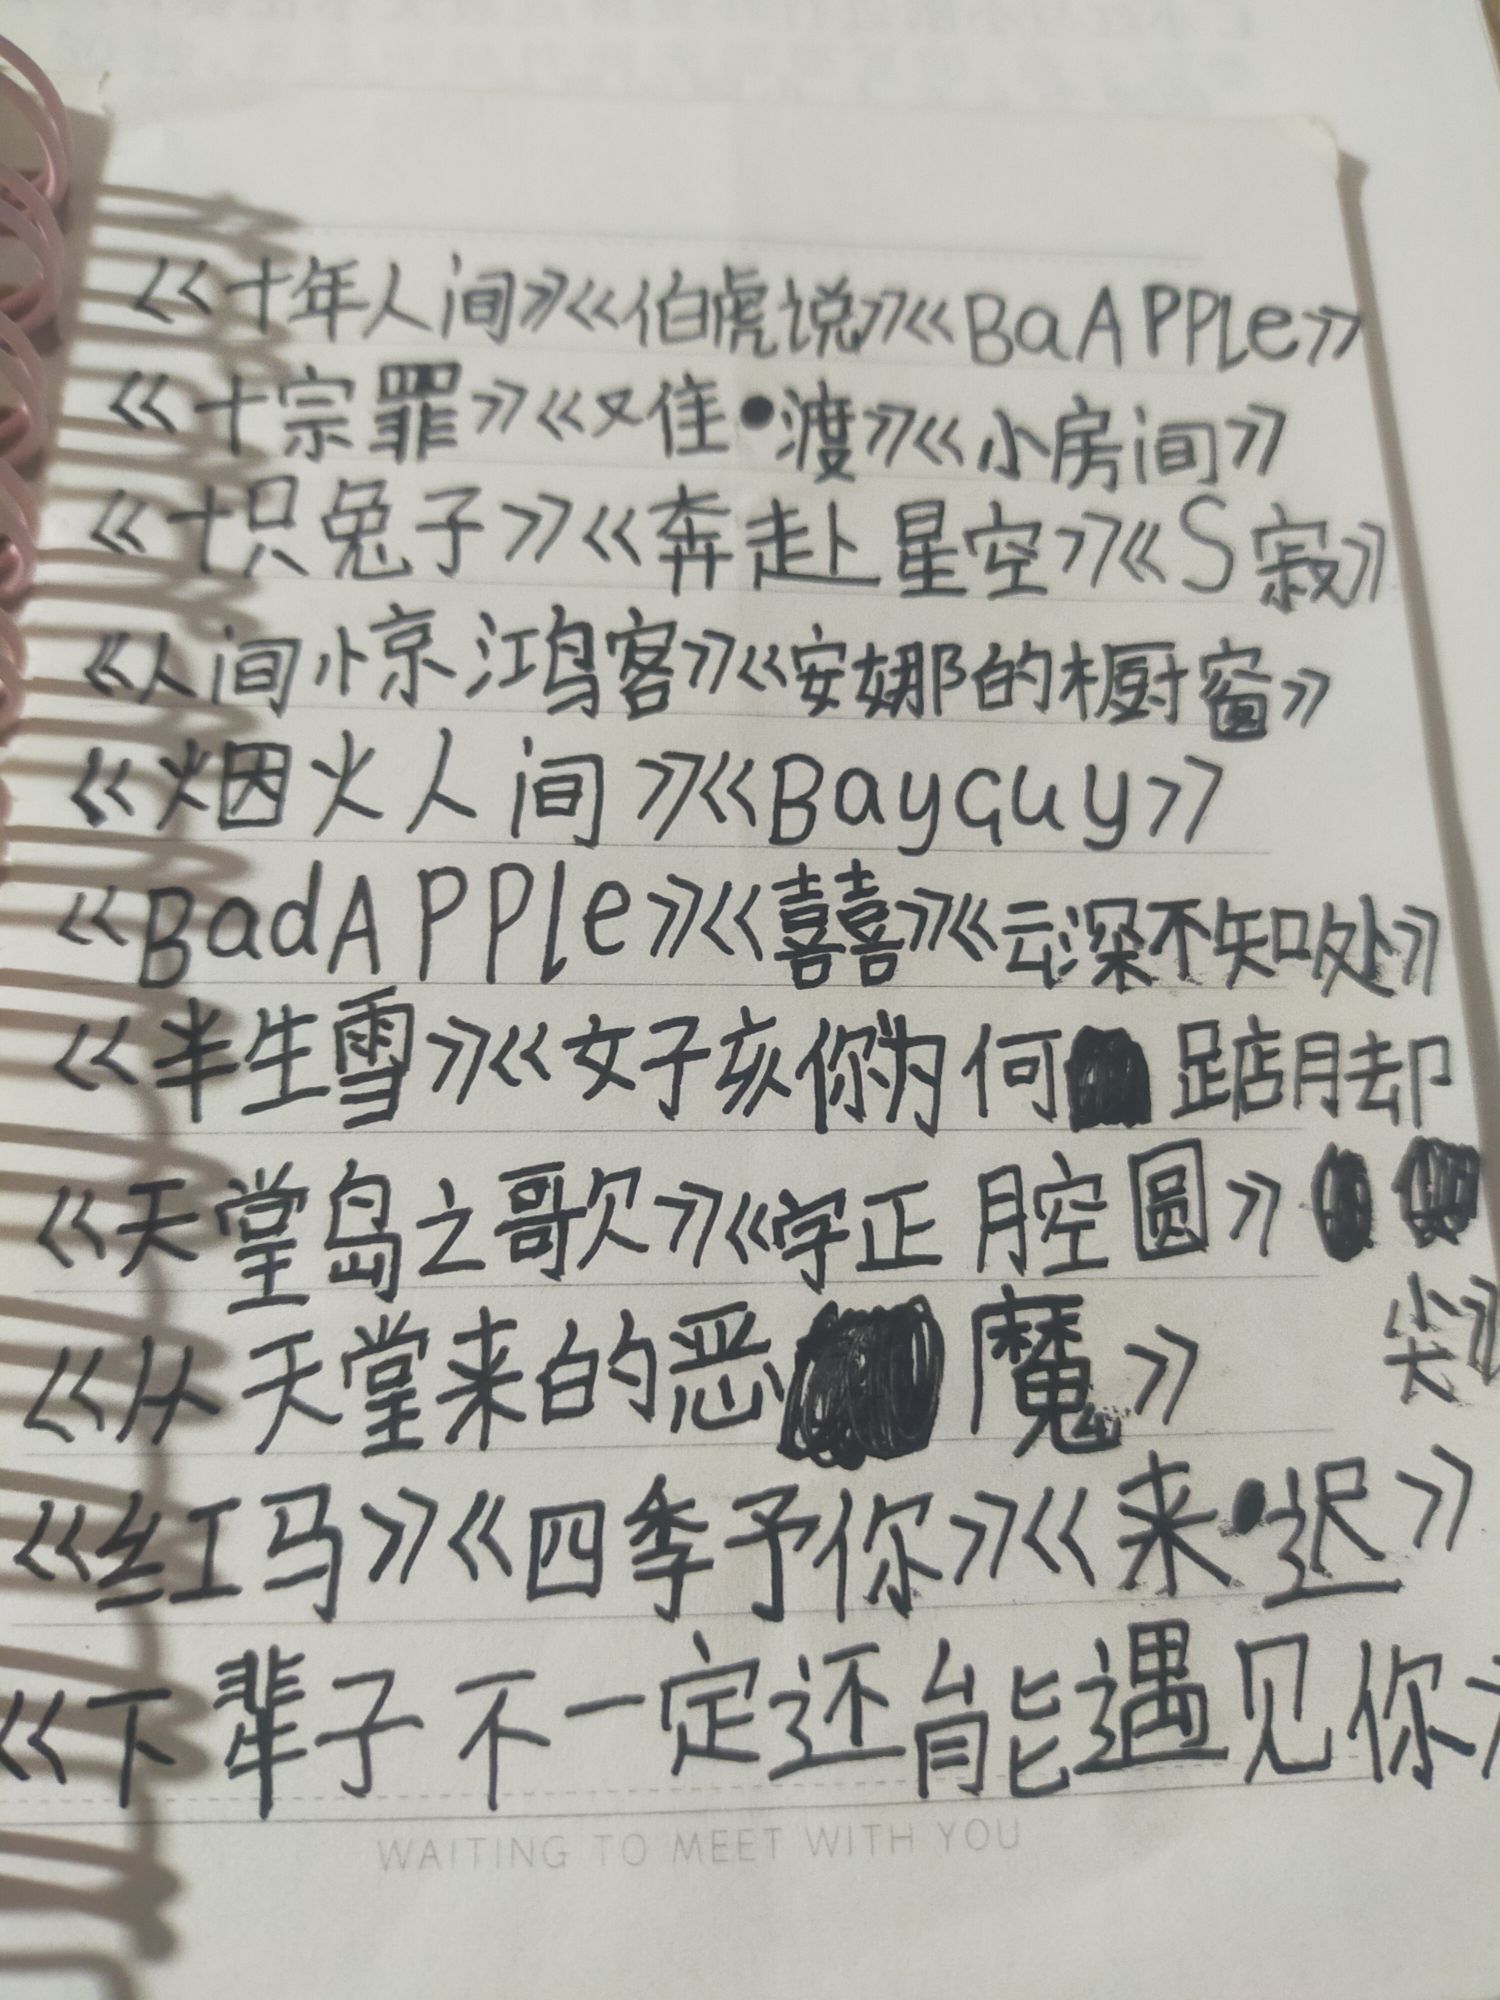 《十年人间》《伯虎说》《BaAPPLe》
《十宗罪》《又佳渡》《小房间》
《十只兔子》《奔赴星空》《S寂》
《人间惊鸿客》《安娜的橱窗》
《烟火人间》《BayGuy》
《BadAPPle》《囍》《云深不知处》
《半生雪》《女子孩你为何踮脚
尖》
《天堂岛之歌》《字正腔圆》
《从天堂来的恶魔》
《红马》《四季予你》《来迟》
《下辈子不一定还能遇见你
WAITING TO MEET WITH YOU